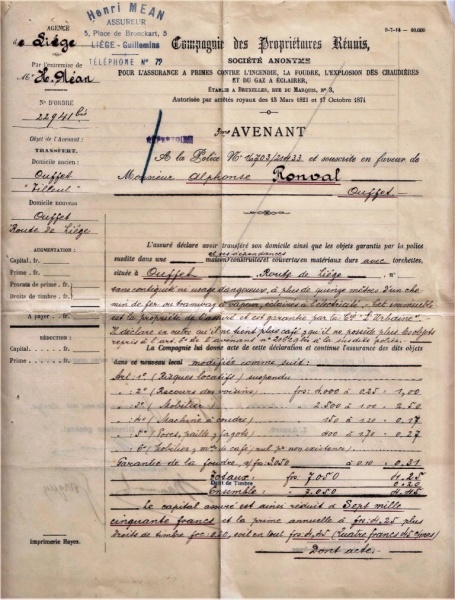 Henri MEAN
ASSUREUR
5, Place de Bronckart, 5
LIÉGE-Guillemins
TÉLÉPHONE N° 79
9-7-14 — 20.000
AGENCE
de Liége
Par l'entremise de
Mr H. Méan
N° D'ORDRE
22941 bis
Dépt de l'Avenant :
TRANSFERT.
Domicile ancien :
Ouffet
"Tilleul"
Domicile nouveau
Ouffet
Route de Liége
AUGMENTATION :
Capital : fr.
Prime : fr.
Prorata de prime : fr.
Droits de timbre : fr.
A payer : fr.
RÉDUCTION :
Capital : fr.
Prime : fr.
Imprimerie Hayez.
Compagnie des Propriétaires Réunis,
SOCIÉTÉ ANONYME
POUR L'ASSURANCE A PRIMES CONTRE L'INCENDIE, LA FOUDRE, L'EXPLOSION DES CHAUDIÈRES
ET DU GAZ A ÉCLAIRER,
ÉTABLIE A BRUXELLES, RUE DU MARQUIS, N° 3,
Autorisée par arrêtés royaux des 13 Mars 1821 et 17 Octobre 1874
RÉPERTOIRE
AVENANT
A la Police N° et souscrite en faveur de
Monsieur Alphonse Ronval
Ouffet
L'assuré déclare avoir transféré son domicile ainsi que les objets garantis par la police
et ses dépendances
susdite dans une maison construite et couverte en matériaux durs avec torchettes
située à Ouffet, Route de Liége, n°
sans contiguité ni usage dangereux, à plus de quinze mètres d'un che-
min de fer ou tramway à vapeur, éclairée à l'électricité. Cet immeuble
est la propriété de l'assuré et est garantie par la Cie "L'Urbaine".
Il déclare en outre qu'il ne tient plus café, qu'il ne possède plus les objets
repris à l'art. de l'avenant n° à la susdite police.
La Compagnie lui donne acte de cette déclaration et continue l'assurance des dits objets
dans ce nouveau local modifiée comme suit :
Art. 1° (Risques locatifs) suspendu
" 2° (Recours des voisins) frs: 4,000 à 0.25 1,00
" 3° (Mobilier) 2.500 1.00 2.50
" 4° (Machine à coudre) 150 à 1.80 0.27
" 5° (Porcs, paille, fagots) 400
" 6°
Garantie de la foudre, s/frs 3050 à 0.10 0.31
Totaux: frs: 7.050 4.25
Droit de Timbre 0.20
Ensemble 7.050 4.45
Le capital assuré est ainsi réduit à Sept mille
cinquante francs et la prime annuelle à frs: 4.25 plus
droits de timbre frs: 0.20, soit en tout frs: 4.45 (Quatre francs 45 cmes)
Dont acte.